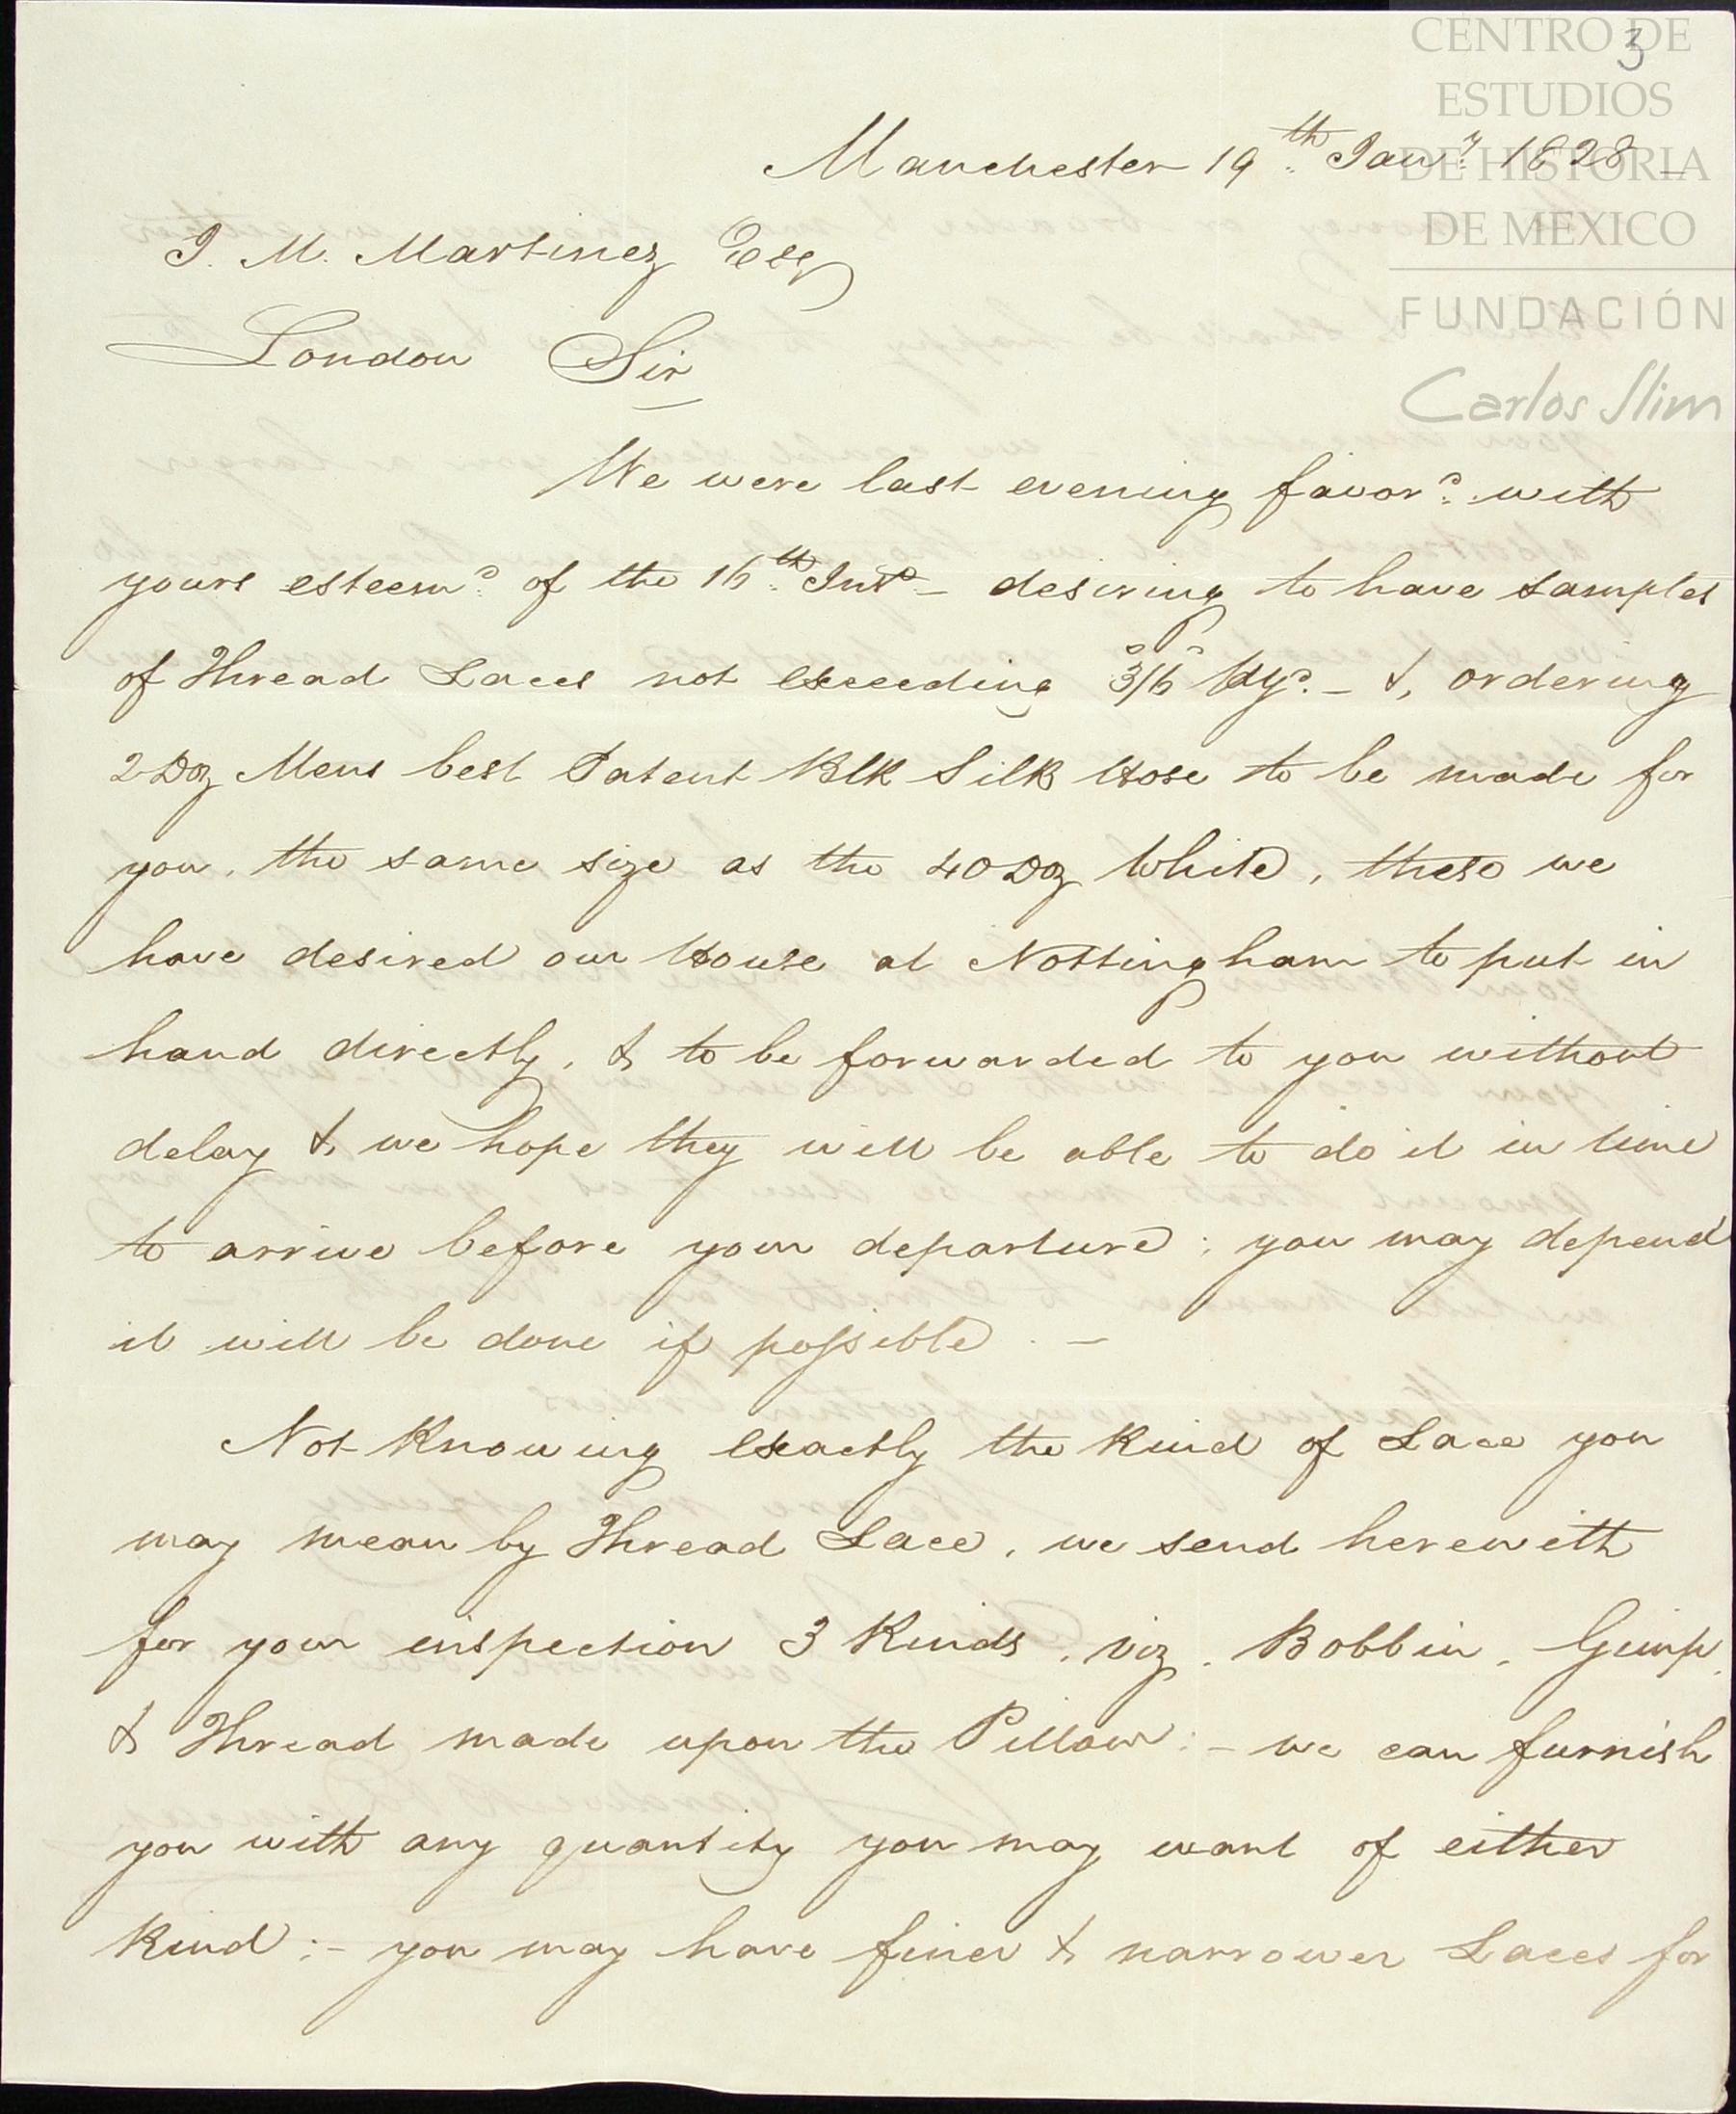 CENTRO DE
ESTUDIOS
DE HISTORIA
DE MEXICO
FUNDACIÓN
Carlos Slim
3
Manchester 19th Jany 1828
J. M. Martinez Esq
London Sir
We were last evening favord with
yours esteemd of the 16th Inst – desiring to have samples
of Thread Laces not exceeding 3/6 Pyd. – &, ordering
2 Doz Mens best Patent Blk Silk Hose to be made for
you, the same size as the 40 Doz White, these we
have desired our House at Nottingham to put in
hand directly, & to be forwarded to you without
delay & we hope they will be able to do it in time
to arrive before your departure; you may depend
it will be done if possible. –
Not Knowing exactly the Kind of Lace you
may mean by Thread Lace, we send herewith
for your inspection 3 Kinds, viz. Bobbin, Gimp,
& Thread made upon the Pillow: – we can furnish
you with any quantity you may want of either
Kind: – you may have finer & narrower Laces for